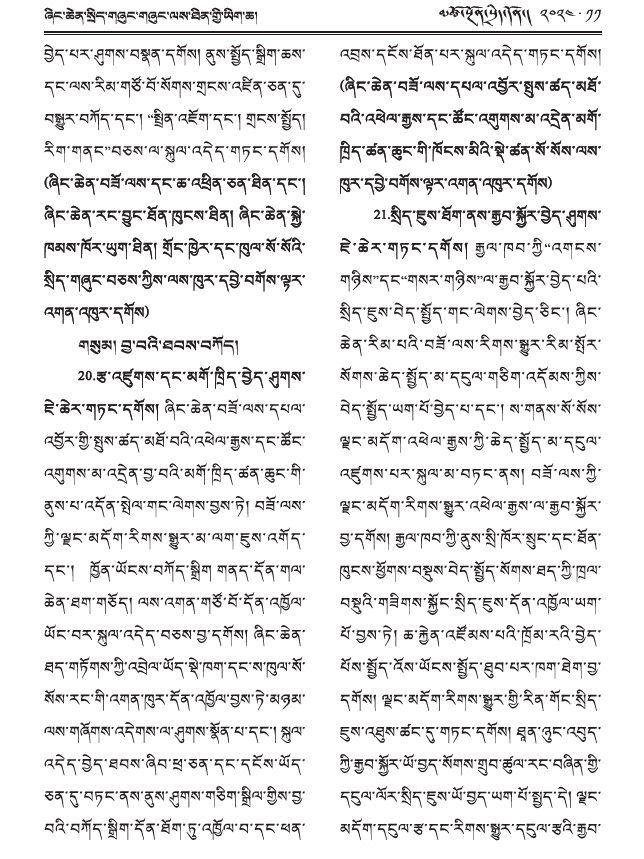 ཞིང་ཆེན་སྲིད་གཞུང་གཞུང་ལས་ཐིན་གྱི་ཡིག་ཆ།
༢༠༢༤·༡༡
བྱེད་པར་ཤུགས་བསྣན་དགོས། ནུས་སྤྱོད་སྒྲིག་ཆས་
དང་ལས་རིམ་གཙོ་བོ་སོགས་གྲངས་འཛིན་ཅན་དུ་
བསྒྱུར་བཀོད་དང་། “སྤྲིན་འཇོག་དང་། གྲངས་སྤྱོད།
རིག་གནང”བཅས་ལ་སྐུལ་འདེད་གཏང་དགོས།
(ཞིང་ཆེན་བཟོ་ལས་དང་ཆ་འཕྲིན་ཅན་ཐིན་དང་།
ཞིང་ཆེན་རང་བྱུང་ཐོན་ཁུངས་ཐིན། ཞིང་ཆེན་སྐྱེ་
ཁམས་ཁོར་ཡུག་ཐིན། གྲོང་ཁྱེར་དང་ཁུལ་སོ་སོའི་
སྲིད་གཞུང་བཅས་ཀྱིས་ལས་ཁུར་དབྱེ་བགོས་ལྟར་
འགན་འཁུར་དགོས)
གསུམ། བྱ་བའི་ཐབས་བཀོད།
20.རྩ་འཛུགས་དང་མགོ་ཁྲིད་བྱེད་ཤུགས་
ཇེ་ཆེར་གཏང་དགོས། ཞིང་ཆེན་བཟོ་ལས་དཔལ་
འབྱོར་གྱི་སྤུས་ཚད་མཐོ་བའི་འཕེལ་རྒྱས་དང་ཚོང་
འགུགས་མ་འདྲེན་བྱ་བའི་མགོ་ཁྲིད་ཚན་ཆུང་གི་
ནུས་པ་འདོན་སྤེལ་གང་ལེགས་བྱས་ཏེ། བཟོ་ལས་
ཀྱི་ལྗང་མདོག་རིགས་སྒྱུར་མ་ལག་ཇུས་འགོད་
དང་། ཁྱོན་ཡོངས་བཀོད་སྒྲིག གནད་དོན་གལ་
ཆེན་ཐག་གཅོད། ལས་འགན་གཙོ་བོ་དོན་འཁྱོལ་
ཡོང་བར་སྐུལ་འདེད་བཅས་བྱ་དགོས། ཞིང་ཆེན་
ཐད་གཏོགས་ཀྱི་འབྲེལ་ཡོད་སྡེ་ཁག་དང་ས་ཁུལ་སོ་
སོས་རང་གི་འགན་ཁུར་དོན་འཁྱོལ་བྱས་ཏེ་མཉམ་
ལས་གཞོགས་འདེགས་ལ་ཤུགས་སྣོན་པ་དང་། སྐུལ་
འདེད་བྱེད་ཐབས་ཞིབ་ཕྲ་ཅན་དང་དངོས་ཡོད་
ཅན་དུ་བཏང་ནས་ནུས་ཤུགས་གཅིག་སྒྲིལ་གྱིས་བྱ་
བའི་བཀོད་སྒྲིག་དོན་ཐོག་ཏུ་འཁྱོལ་བ་དང་ཕན་
འབྲས་དངོས་ཐོན་པར་སྐུལ་འདེད་གཏང་དགོས།
(ཞིང་ཆེན་བཟོ་ལས་དཔལ་འབྱོར་སྤུས་ཚད་མཐོ་
བའི་འཕེལ་རྒྱས་དང་ཚོང་འགུགས་མ་འདྲེན་མགོ་
ཁྲིད་ཚན་ཆུང་གི་ཁོངས་མིའི་སྡེ་ཚན་སོ་སོས་ལས་
ཁུར་དབྱེ་བགོས་ལྟར་འགན་འཁུར་དགོས)
21.སྲིད་ཇུས་ཐོག་ནས་རྒྱབ་སྐྱོར་བྱེད་ཤུགས་
ཇེ་ཆེར་གཏང་དགོས། རྒྱལ་ཁབ་ཀྱི“འགངས་
གཉིས”དང“གསར་གཉིས”ལ་རྒྱབ་སྐྱོར་བྱེད་པའི་
སྲིད་ཇུས་བེད་སྤྱོད་གང་ལེགས་བྱེད་ཅིང་། ཞིང་
ཆེན་རིམ་པའི་བཟོ་ལས་རིགས་སྒྱུར་རིམ་སྤོར་
སོགས་ཆེད་སྤྱོད་མ་དངུལ་གཅིག་འདོམས་ཀྱིས་
བེད་སྤྱོད་ཡག་པོ་བྱེད་པ་དང་། ས་གནས་སོ་སོས་
ལྗང་མདོག་འཕེལ་རྒྱས་ཀྱི་ཆེད་སྤྱོད་མ་དངུལ་
འཛུགས་པར་སྐུལ་མ་བཏང་ནས། བཟོ་ལས་ཀྱི་
ལྗང་མདོག་རིགས་སྒྱུར་འཕེལ་རྒྱས་ལ་རྒྱབ་སྐྱོར་
བྱ་དགོས། རྒྱལ་ཁབ་ཀྱི་ནུས་སྲི་ཁོར་སྲུང་དང་ཐོན་
ཁུངས་ཕྱོགས་བསྡུས་བེད་སྤྱོད་སོགས་ཐད་ཀྱི་ཁྲལ་
བསྡུའི་གཟིགས་སྐྱོང་སྲིད་ཇུས་དོན་འཁྱོལ་ཡག་
པོ་བྱས་ཏེ། ཆ་རྐྱེན་འཛོམས་པའི་ཁྲོམ་རའི་བྱེད་
པོས་སྤྱོད་འོས་ཡོངས་སྤྱོད་ཐུབ་པར་ཁག་ཐེག་བྱ་
དགོས། ལྗང་མདོག་རིགས་སྒྱུར་གྱི་རིན་གོང་སྲིད་
ཇུས་འཐུས་ཚང་དུ་གཏང་དགོས། ཐུན་ཉུང་འབུད་
ཀྱི་རྒྱབ་སྐྱོར་ཡོ་བྱད་སོགས་གྲུབ་ཚུལ་རང་བཞིན་གྱི་
དངུལ་ལོར་སྲིད་ཇུས་ཡོ་བྱད་ཡག་པོ་སྤྱད་དེ། ལྗང་
མདོག་དངུལ་རྩ་དང་རིགས་སྒྱུར་དངུལ་རྩའི་རྒྱབ་